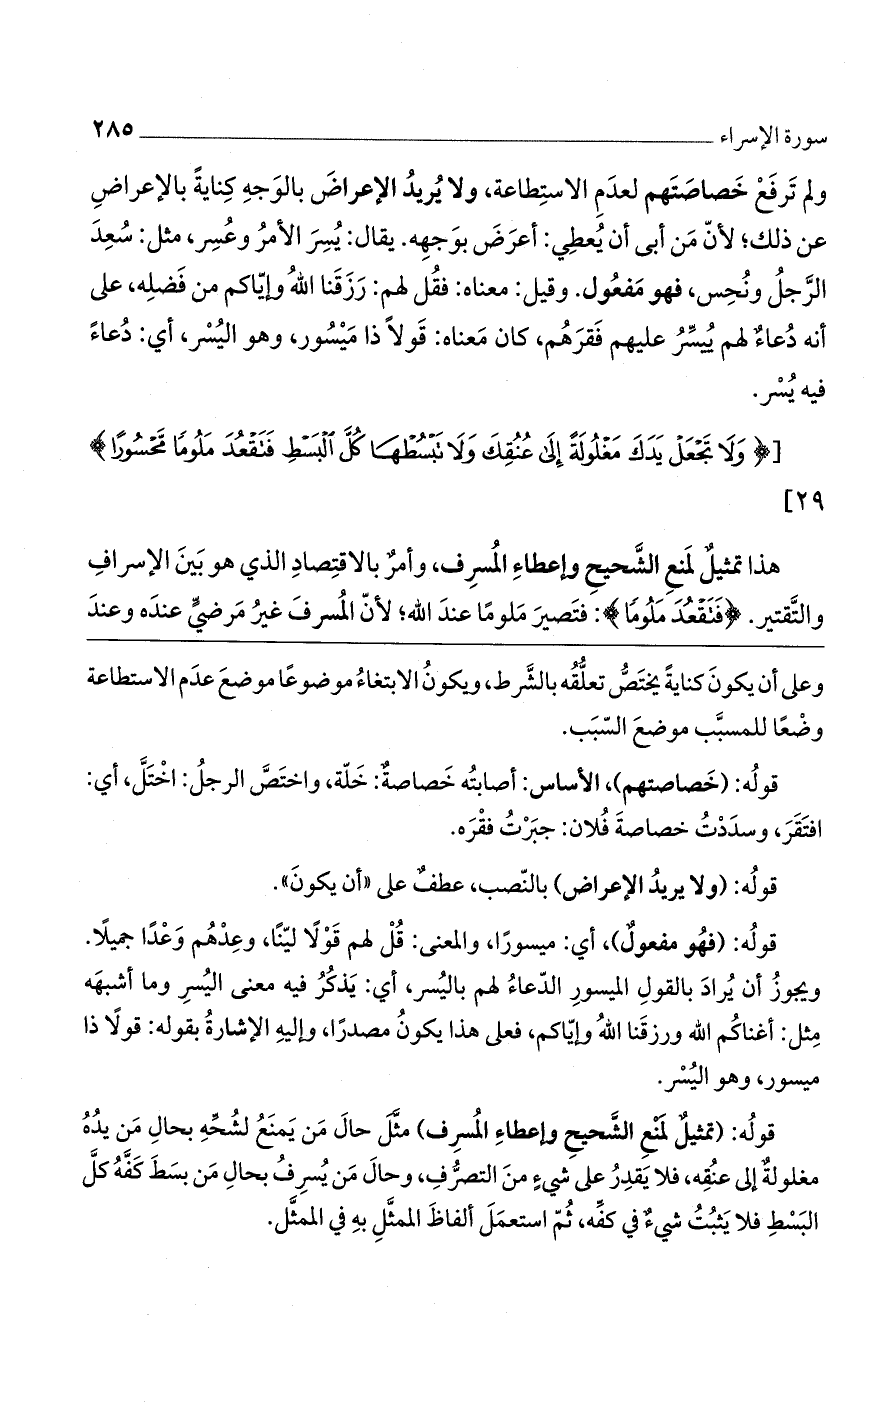 سورة الإسراء ٢٨٥
ولم تَرفَعْ خَصاصَتَهم لعدَمِ الاستِطاعة، ولا يُريدُ الإعراضَ بالوَجهِ كِنايةً بالإعراضِ
عن ذلك؛ لأنّ مَن أبى أن يُعطِي: أعرَضَ بوَجهِه. يقال: يُسِرَ الأمرُ وعُسِر، مثل: سُعِدَ
الرَّجلُ ونُحِس، فهو مَفعُول. وقيل: معناه: فقُل لهم: رَزَقَنا اللهُ وإيّاكم من فَضلِه، على
أنه دُعاءٌ لهم يُيسِّرُ عليهم فَقرَهُم، كان مَعناه: قَولاً ذا مَيْسُور، وهو اليُسْر، أي: دُعاءً
فيه يُسْر.
[﴿وَلَا تَجْعَلْ يَدَكَ مَغْلُولَةً إِلَىٰ عُنُقِكَ وَلَا تَبْسُطْهَا كُلَّ ٱلْبَسْطِ فَتَقْعُدَ مَلُومًا مَّحْسُورًا﴾
٢٩]
هذا تمثيلٌ لمَنعِ الشَّحيحِ وإعطاءِ المُسرِف، وأمرٌ بالاقتِصادِ الذي هو بَينَ الإسرافِ
والتَّقتير. ﴿فَتَقْعُدَ مَلُومًا﴾: فتَصيرَ مَلومًا عندَ الله؛ لأنّ المُسرفَ غيرُ مَرضيٍّ عندَه وعندَ
وعلى أن يكونَ كنايةً يختَصُّ تعلُّقُه بالشَّرط، ويكونُ الابتغاءُ موضوعًا موضعَ عدَم الاستطاعة
وضْعًا للمسبَّب موضعَ السّبَب.
قولُه: (خَصاصتهم)، الأساس: أصابتُه خَصاصةٌ: خَلّة، واختَصَّ الرجلُ: اخْتَلَّ، أي:
افتَقَرَ، وسدَدْتُ خصاصةَ فُلان: جبَرْتُ فقْرَه.
قولُه: (ولا يريدُ الإعراض) بالنّصب، عطفٌ على «أن يكونَ».
قولُه: (فهُو مفعولٌ)، أي: ميسورًا، والمعنى: قُلْ لهم قَوْلًا ليّنًا، وعِدْهُم وَعْدًا جميلًا.
ويجوزُ أن يُرادَ بالقولِ الميسورِ الدّعاءُ لهم باليُسر، أي: يَذكُرُ فيه معنى اليُسرِ وما أشبهَه
مِثل: أغناكُم الله ورزقَنا اللهُ وإيّاكم، فعلى هذا يكونُ مصدرًا، وإليهِ الإشارةُ بقوله: قولًا ذا
ميسور، وهو اليُسْر.
قولُه: (تمثيلٌ لمَنْعِ الشَّحيحِ وإعطاءِ المُسرِف) مثَّلَ حالَ مَن يَمنَعُ لشُحِّهِ بحالِ مَن يدُهُ
مغلولةٌ إلى عنُقِه، فلا يَقدِرُ على شيءٍ منَ التصرُّفِ، وحالَ مَن يُسرِفُ بحالِ مَن بسَطَ كفَّهُ كلَّ
البَسْطِ فلا يَثبُتُ شيءٌ في كفِّه، ثُمّ استعمَلَ ألفاظَ الممثَّلِ بهِ في الممثَّل.